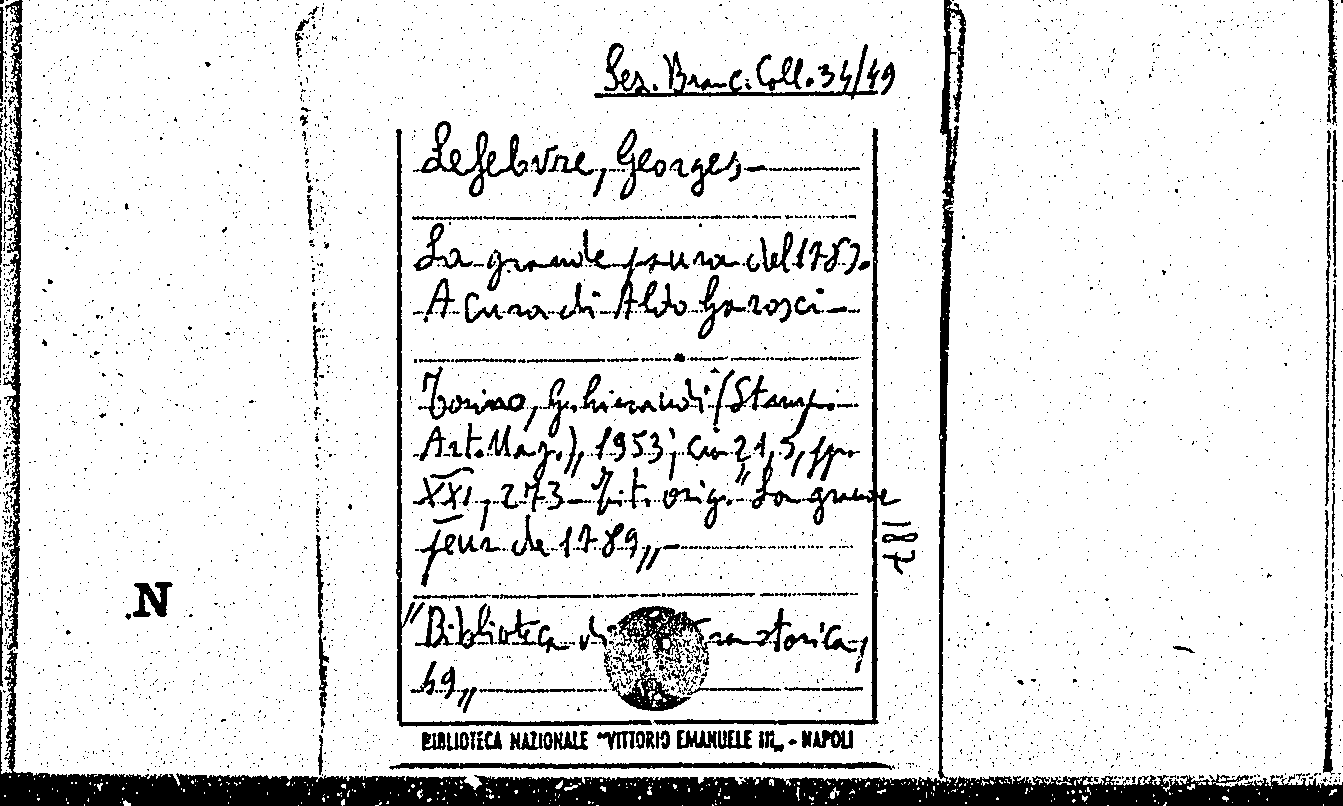 Sez. Branc. Coll. 34/49
Lefebvre, Georges
La grande paura del 1789.
A cura di Aldo Garosci
Torino, Gheraudi (Stamp.
Art. Mag.), 1953; cm 21,5, pp.
XXI, 273 - Tit. orig. "La grande
peur de 1789„
187
"Biblioteca di storica,
49„
N
BIBLIOTECA NAZIONALE "VITTORIO EMANUELE III„ - NAPOLI